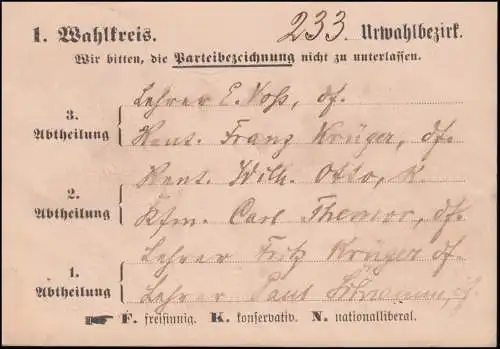 1. Wahlkreis. 233. Urwahlbezirk.
Wir bitten, die Parteibezeichnung nicht zu unterlassen.
3. Abtheilung
Lehrer E. Voß, df.
Rent. Franz Krüger, df.
2. Abtheilung
Rent. Wilh. Otto, K.
Kfm. Carl df.
1. Abtheilung
Lehrer Fritz Krüger df.
Lehrer Paul
F. freisinnig. K. konservativ. N. nationalliberal.